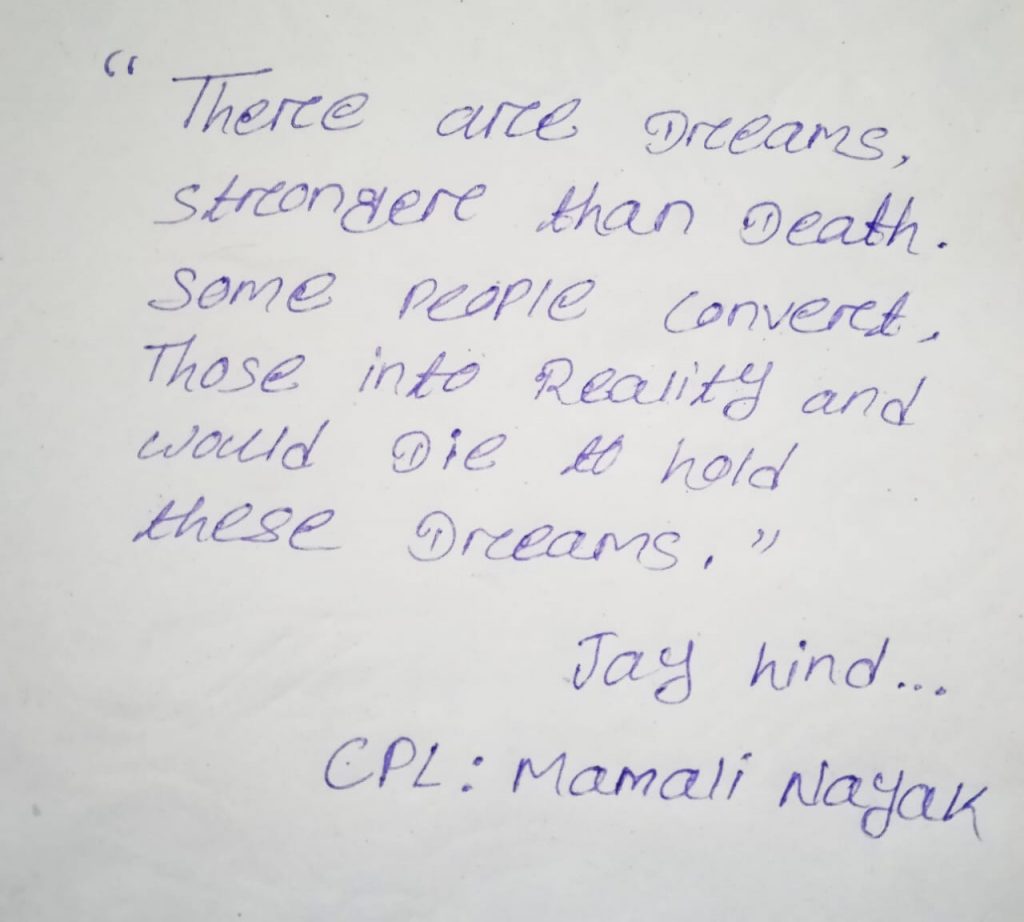 " There are Dreams,
stronger than Death.
Some people convert,
Those into Reality and
would Die to hold
these Dreams."
Jay hind...
CPL: Mamali Nayak